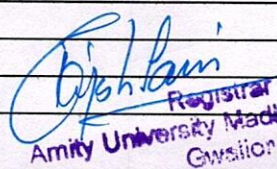 Registrar
Amity University Mad
Gwalior